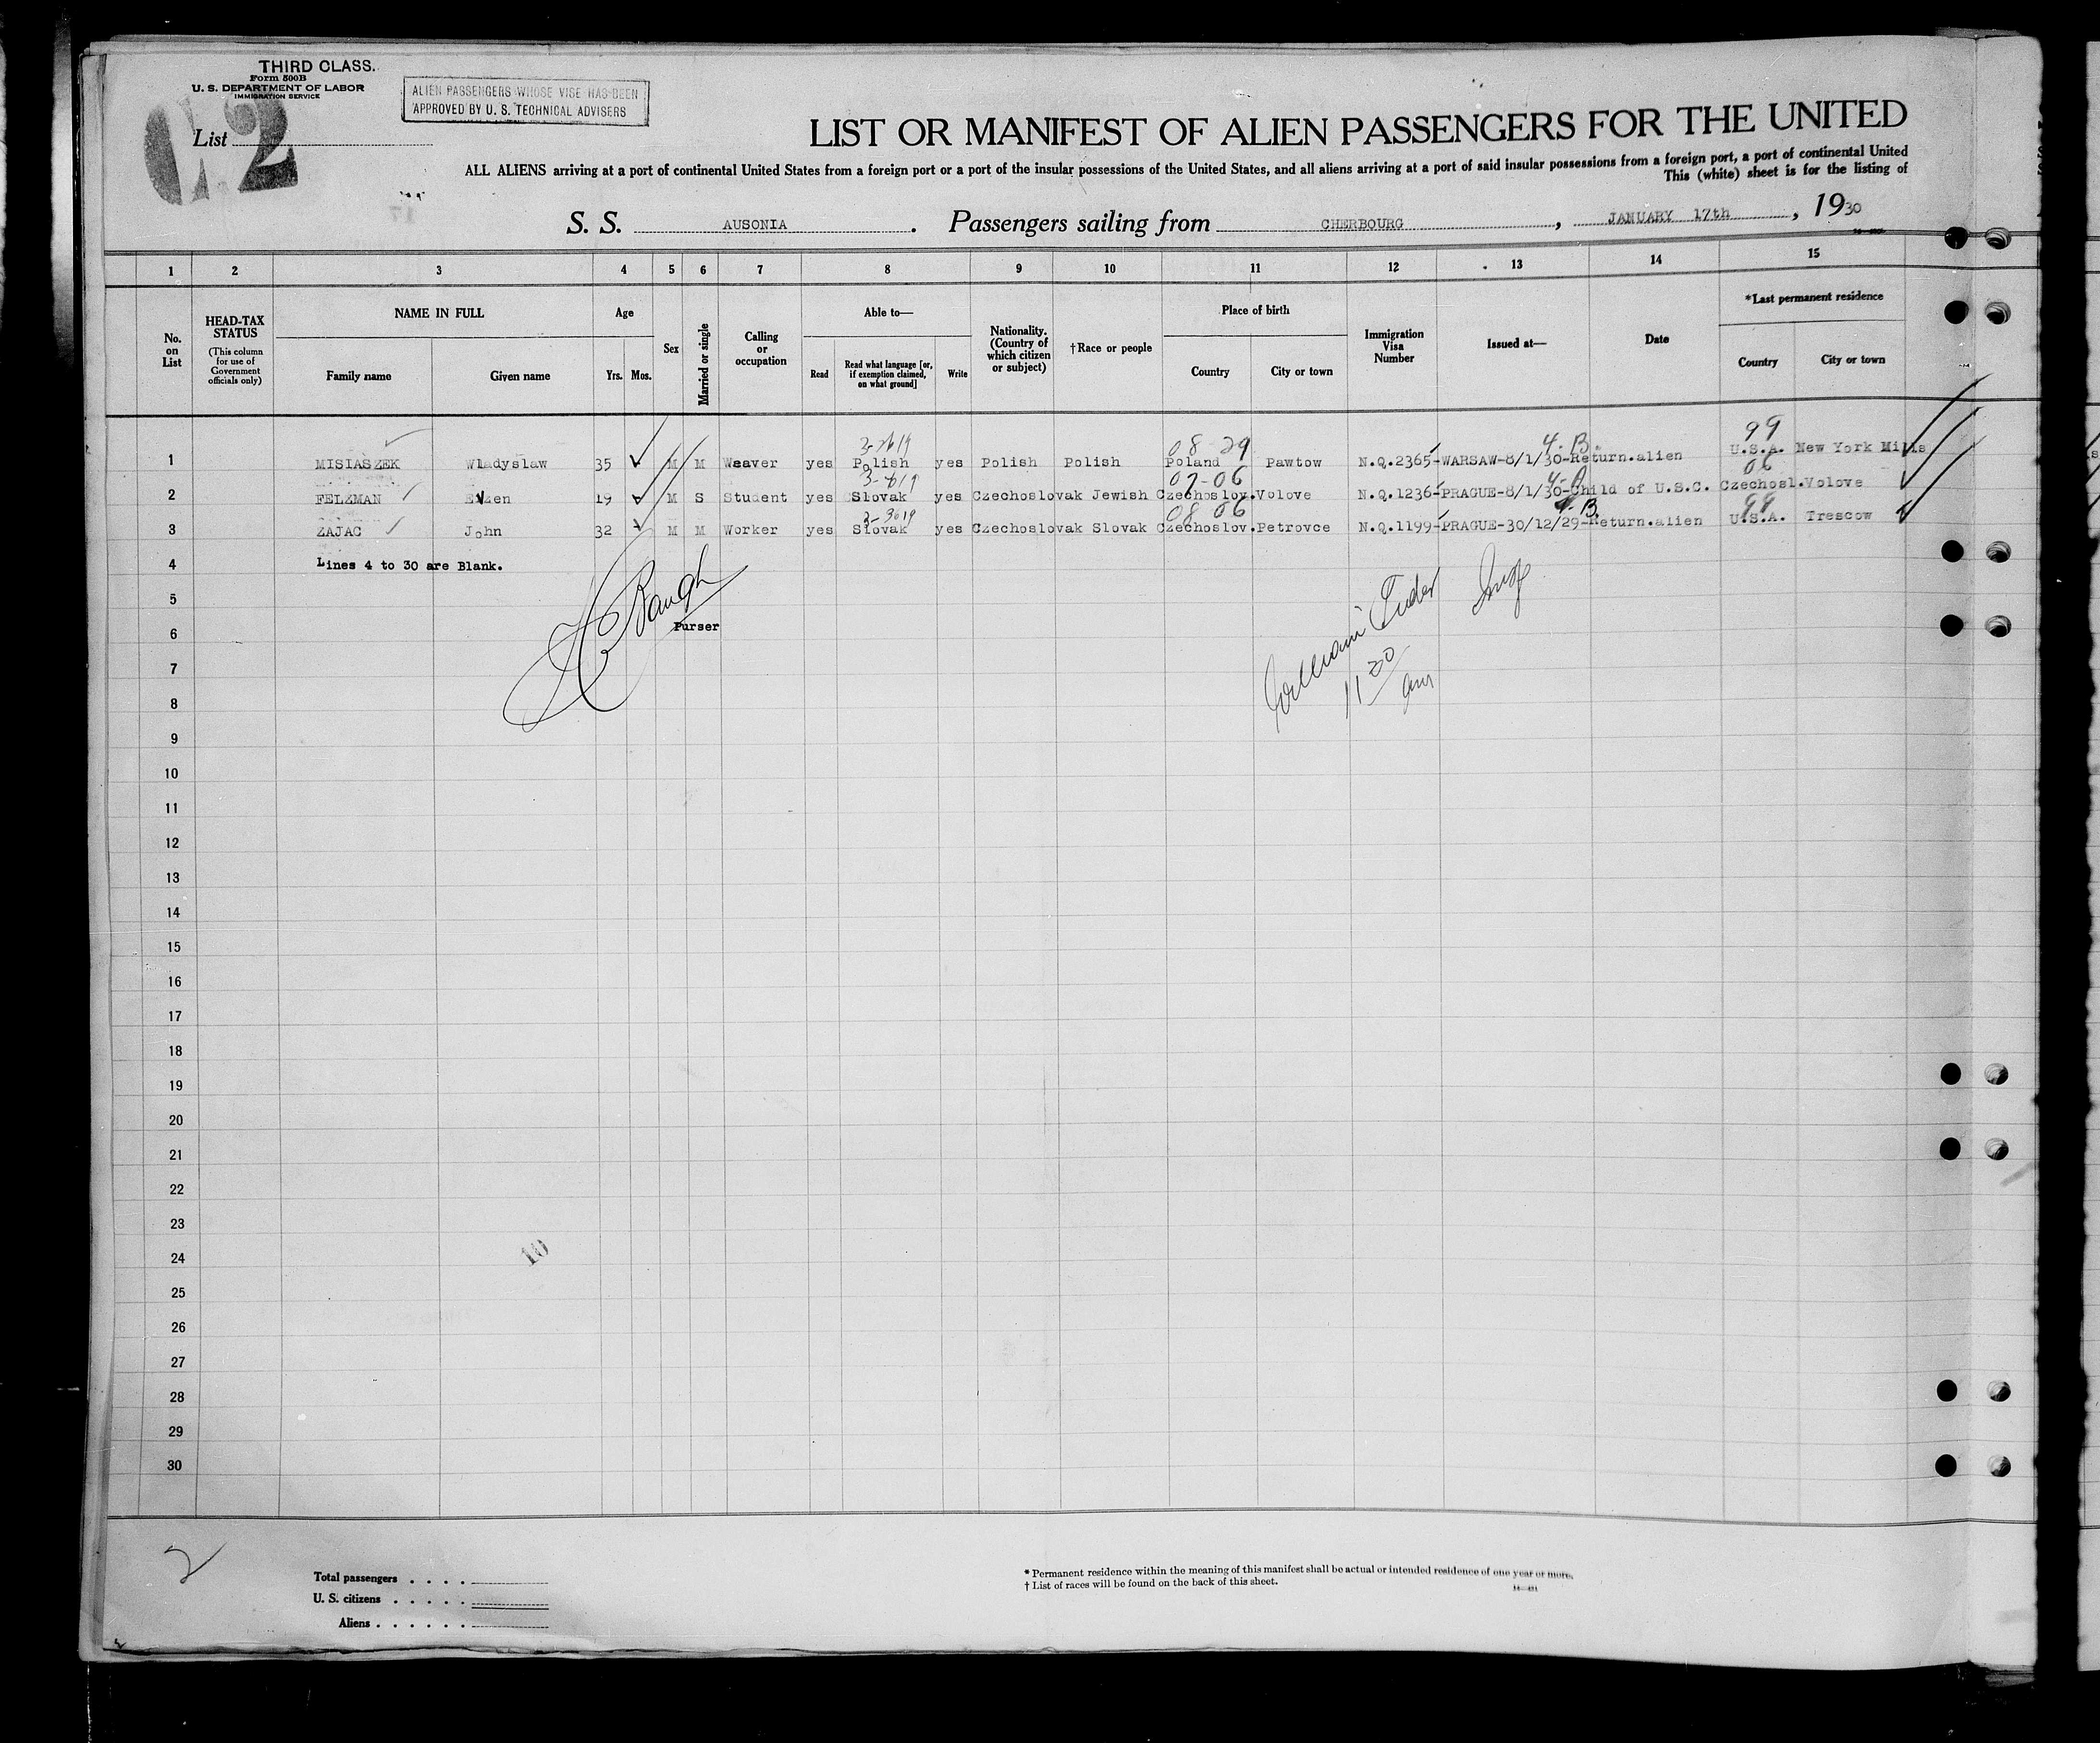 THIRD CLASS.
Form 500B
U. S. DEPARTMENT OF LABOR
IMMIGRATION SERVICE
List 2
ALIEN PASSENGERS WHOSE VISE HAS BEEN
APPROVED BY U. S. TECHNICAL ADVISERS
LIST OR MANIFEST OF ALIEN PASSENGERS FOR THE UNITED
ALL ALIENS arriving at a port of continental United States from a foreign port or a port of the insular possessions of the United States, and all aliens arriving at a port of said insular possessions from a foreign port, a port of continental United
This (white) sheet is for the listing of
S. S. AUSONIA. Passengers sailing from CHERBOURG, JANUARY 17th, 1930
1 2 3 4 5 6 7 8 9 10 11 12 13 14 15
No. on List
HEAD-TAX STATUS
(This column for use of Government officials only)
NAME IN FULL
Family name Given name
Age
Yrs. Mos.
Sex
Married or single
Calling or occupation
Able to—
Read
Read what language [or, if exemption claimed, on what ground]
Write
Nationality. (Country of which citizen or subject)
†Race or people
Place of birth
Country City or town
Immigration Visa Number
Issued at—
Date
*Last permanent residence
Country City or town
08 29 4-B. 99
1 MISIASZEK Wladyslaw 35 M M Weaver yes Polish yes Polish Polish Poland Pawtow N.Q.2365-WARSAW-8/1/30-Return.alien U.S.A. New York Mills
07-06 06
2 FELZMAN 19 M S Student yes Slovak yes Czechoslovak Jewish Czechoslov. Volove N.Q.1236-PRAGUE-8/1/30-Child of U.S.C. Czechosl. Volove
08 06 4-B. 99
3 ZAJAC John 32 M M Worker yes Slovak yes Czechoslovak Slovak Czechoslov. Petrovce N.Q.1199-PRAGUE-30/12/29-Return.alien U.S.A. Trescow
4 Lines 4 to 30 are Blank.
5
6 Purser
William Tuder Insp
11 30 am
7
8
9
10
11
12
13
14
15
16
17
18
19
20
21
22
23
24
10
25
26
27
28
29
30
2
Total passengers . . . .
U. S. citizens . . . . .
Aliens . . . . . .
* Permanent residence within the meaning of this manifest shall be actual or intended residence of one year or more.
† List of races will be found on the back of this sheet.